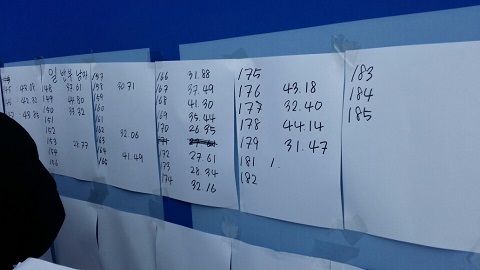 일반부 남자
148 37.61
149 44.80
150 33.72
151
152
153 28.77
154
157
158 30.71
159
160
161
162
163 32.06
164
165 41.49
166 31.88
167 37.49
168 41.30
169 35.44
170 26.35
172 27.61
173 28.34
174 32.16
175
176 43.18
177 32.40
178 44.14
179 31.47
181 1.
182
183
184
185